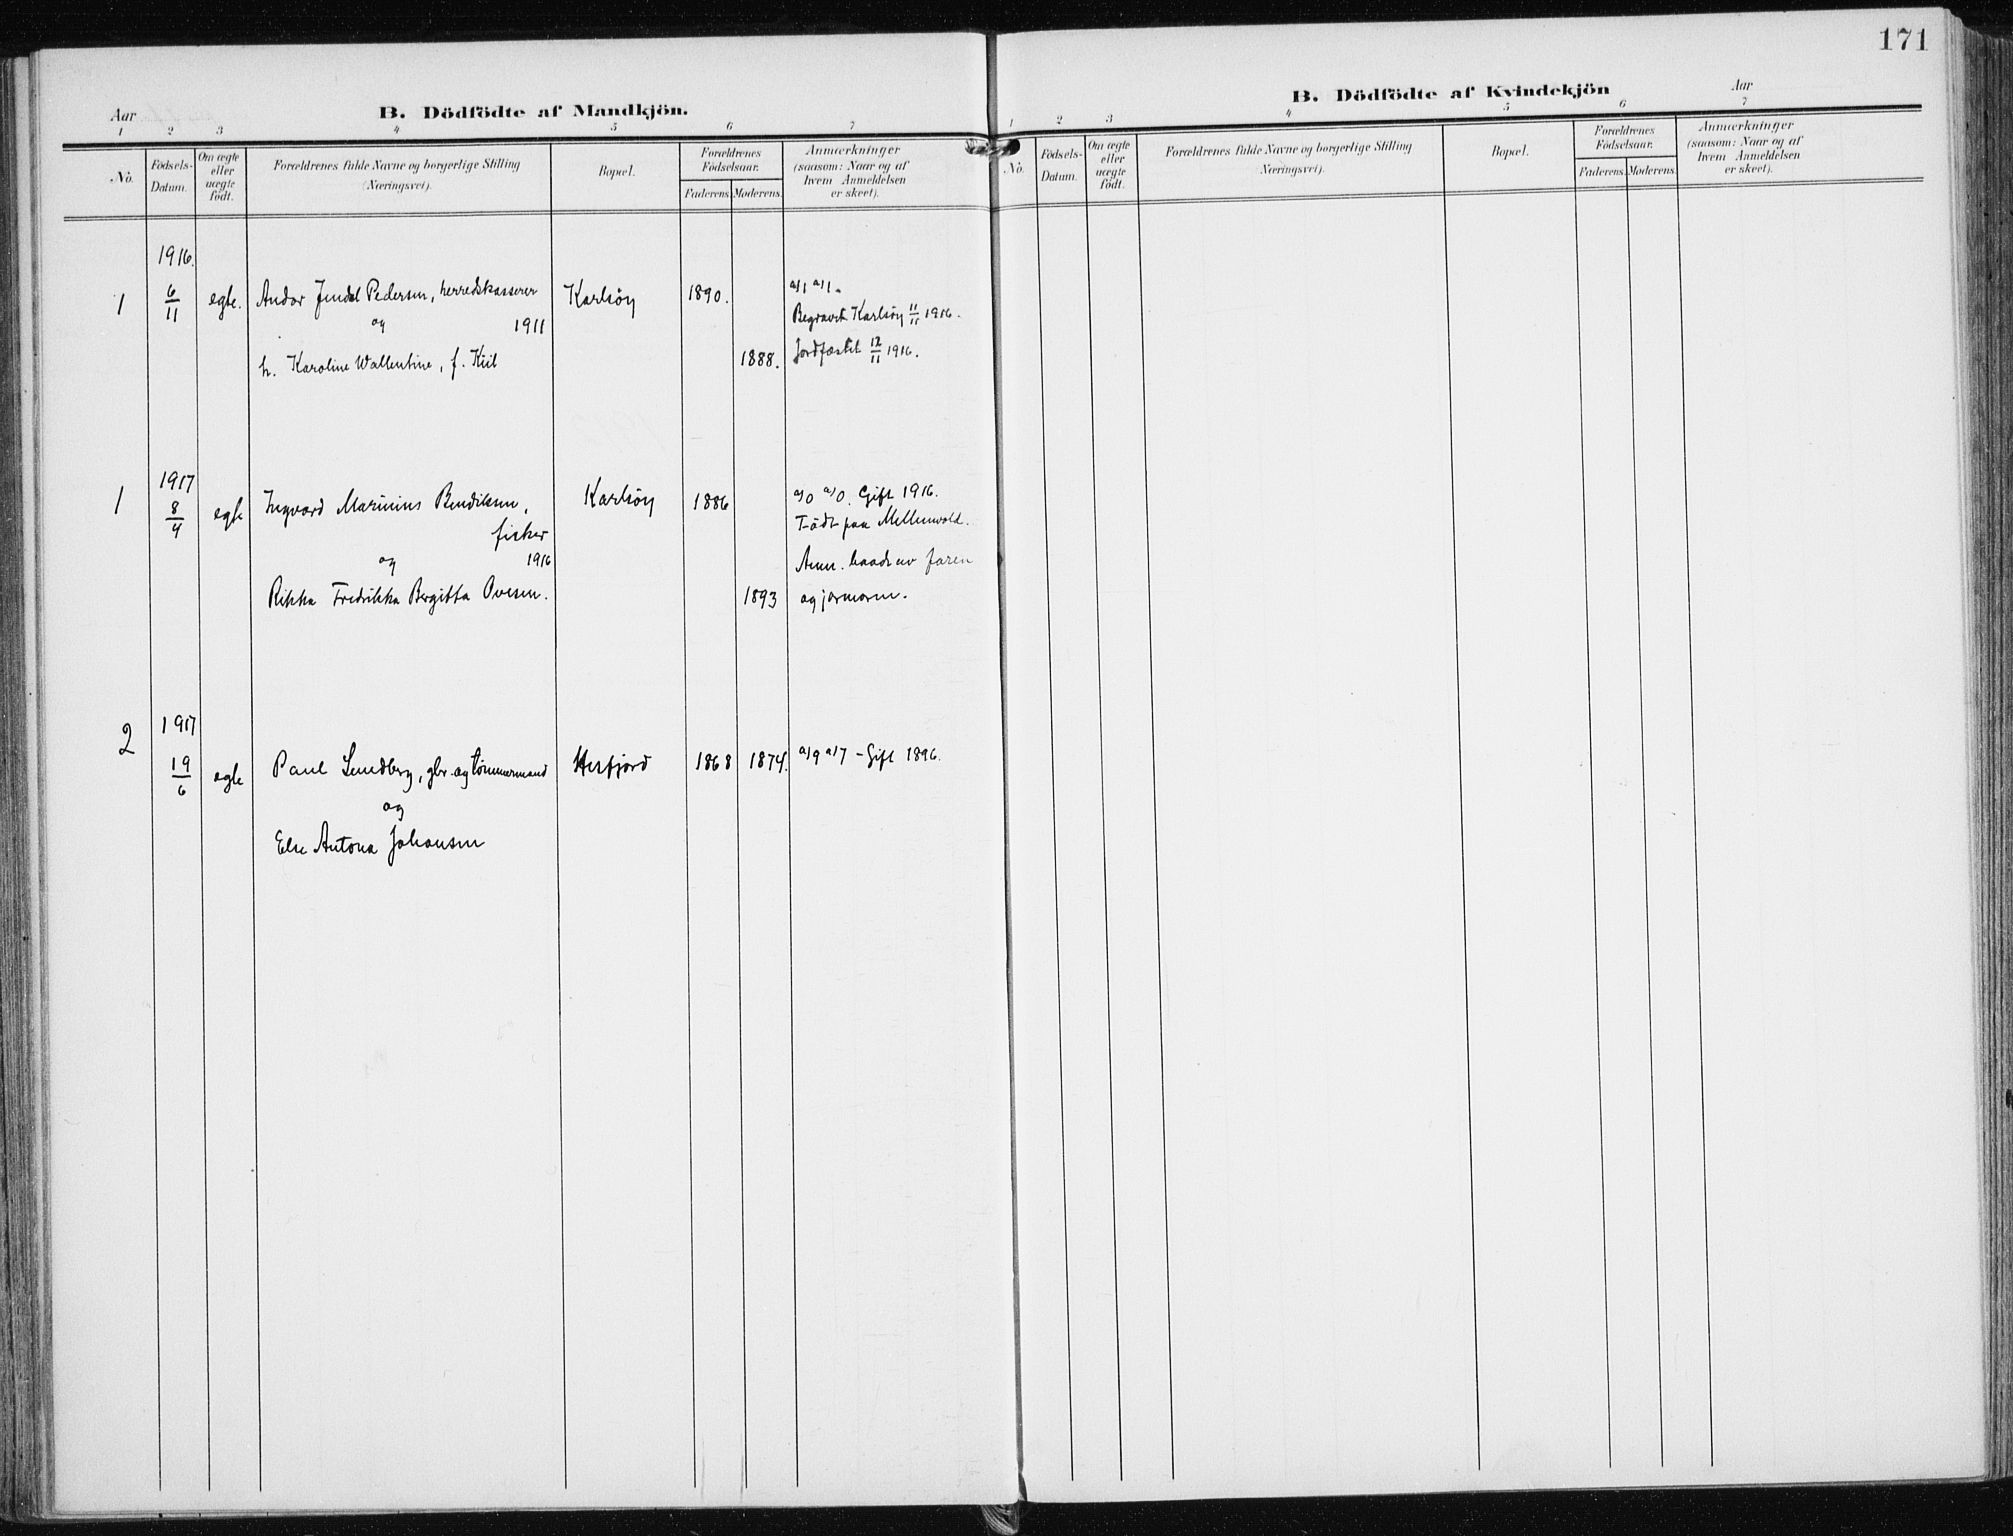 171
Aar
B. Dödfödte af Mandkjön.
1 2 3 4 5 6 7
No. Födsels-Datum. Om ægte eller uægte födt. Forældrenes fulde Navne og borgerlige Stilling (Næringsvei). Bopæl. Forældrenes Födselsaar. Faderens. Moderens. Anmærkninger (saasom: Naar og af hvem Anmeldelsen er skeet).
1916.
1 6/11 egte. Andor Pedersen, herredskasserer Karlsöy 1890. a/1 a/1.
og 1911 Begravet Karlsöy 11/11 1916.
h. Karoline Wallentine, f. Kiil 1888. Jordfæstet 12/11 1916.
1917
1 8/4 egte Ingvard Marinius Bendiksen, Karlsöy 1886 a/0 a/0. Gift 1916.
fisker Födt paa Mellemvold.
og 1916 Anm. baade av faren
Rikka Fredrikka Bergitta Ovesen. 1893 og jormoren.
1917
2 19/6 egte Paul Lundberg, gbr. og tömmermand 1868 1874. a/9 a/7 - Gift 1896.
og
Else Antona Johansen
B. Dödfödte af Kvindekjön
Aar
1 2 3 4 5 6 7
No. Födsels-Datum. Om ægte eller uægte födt. Forældrenes fulde Navne og borgerlige Stilling (Næringsvei). Bopæl. Forældrenes Födselsaar. Faderens. Moderens. Anmærkninger (saasom: Naar og af hvem Anmeldelsen er skeet).